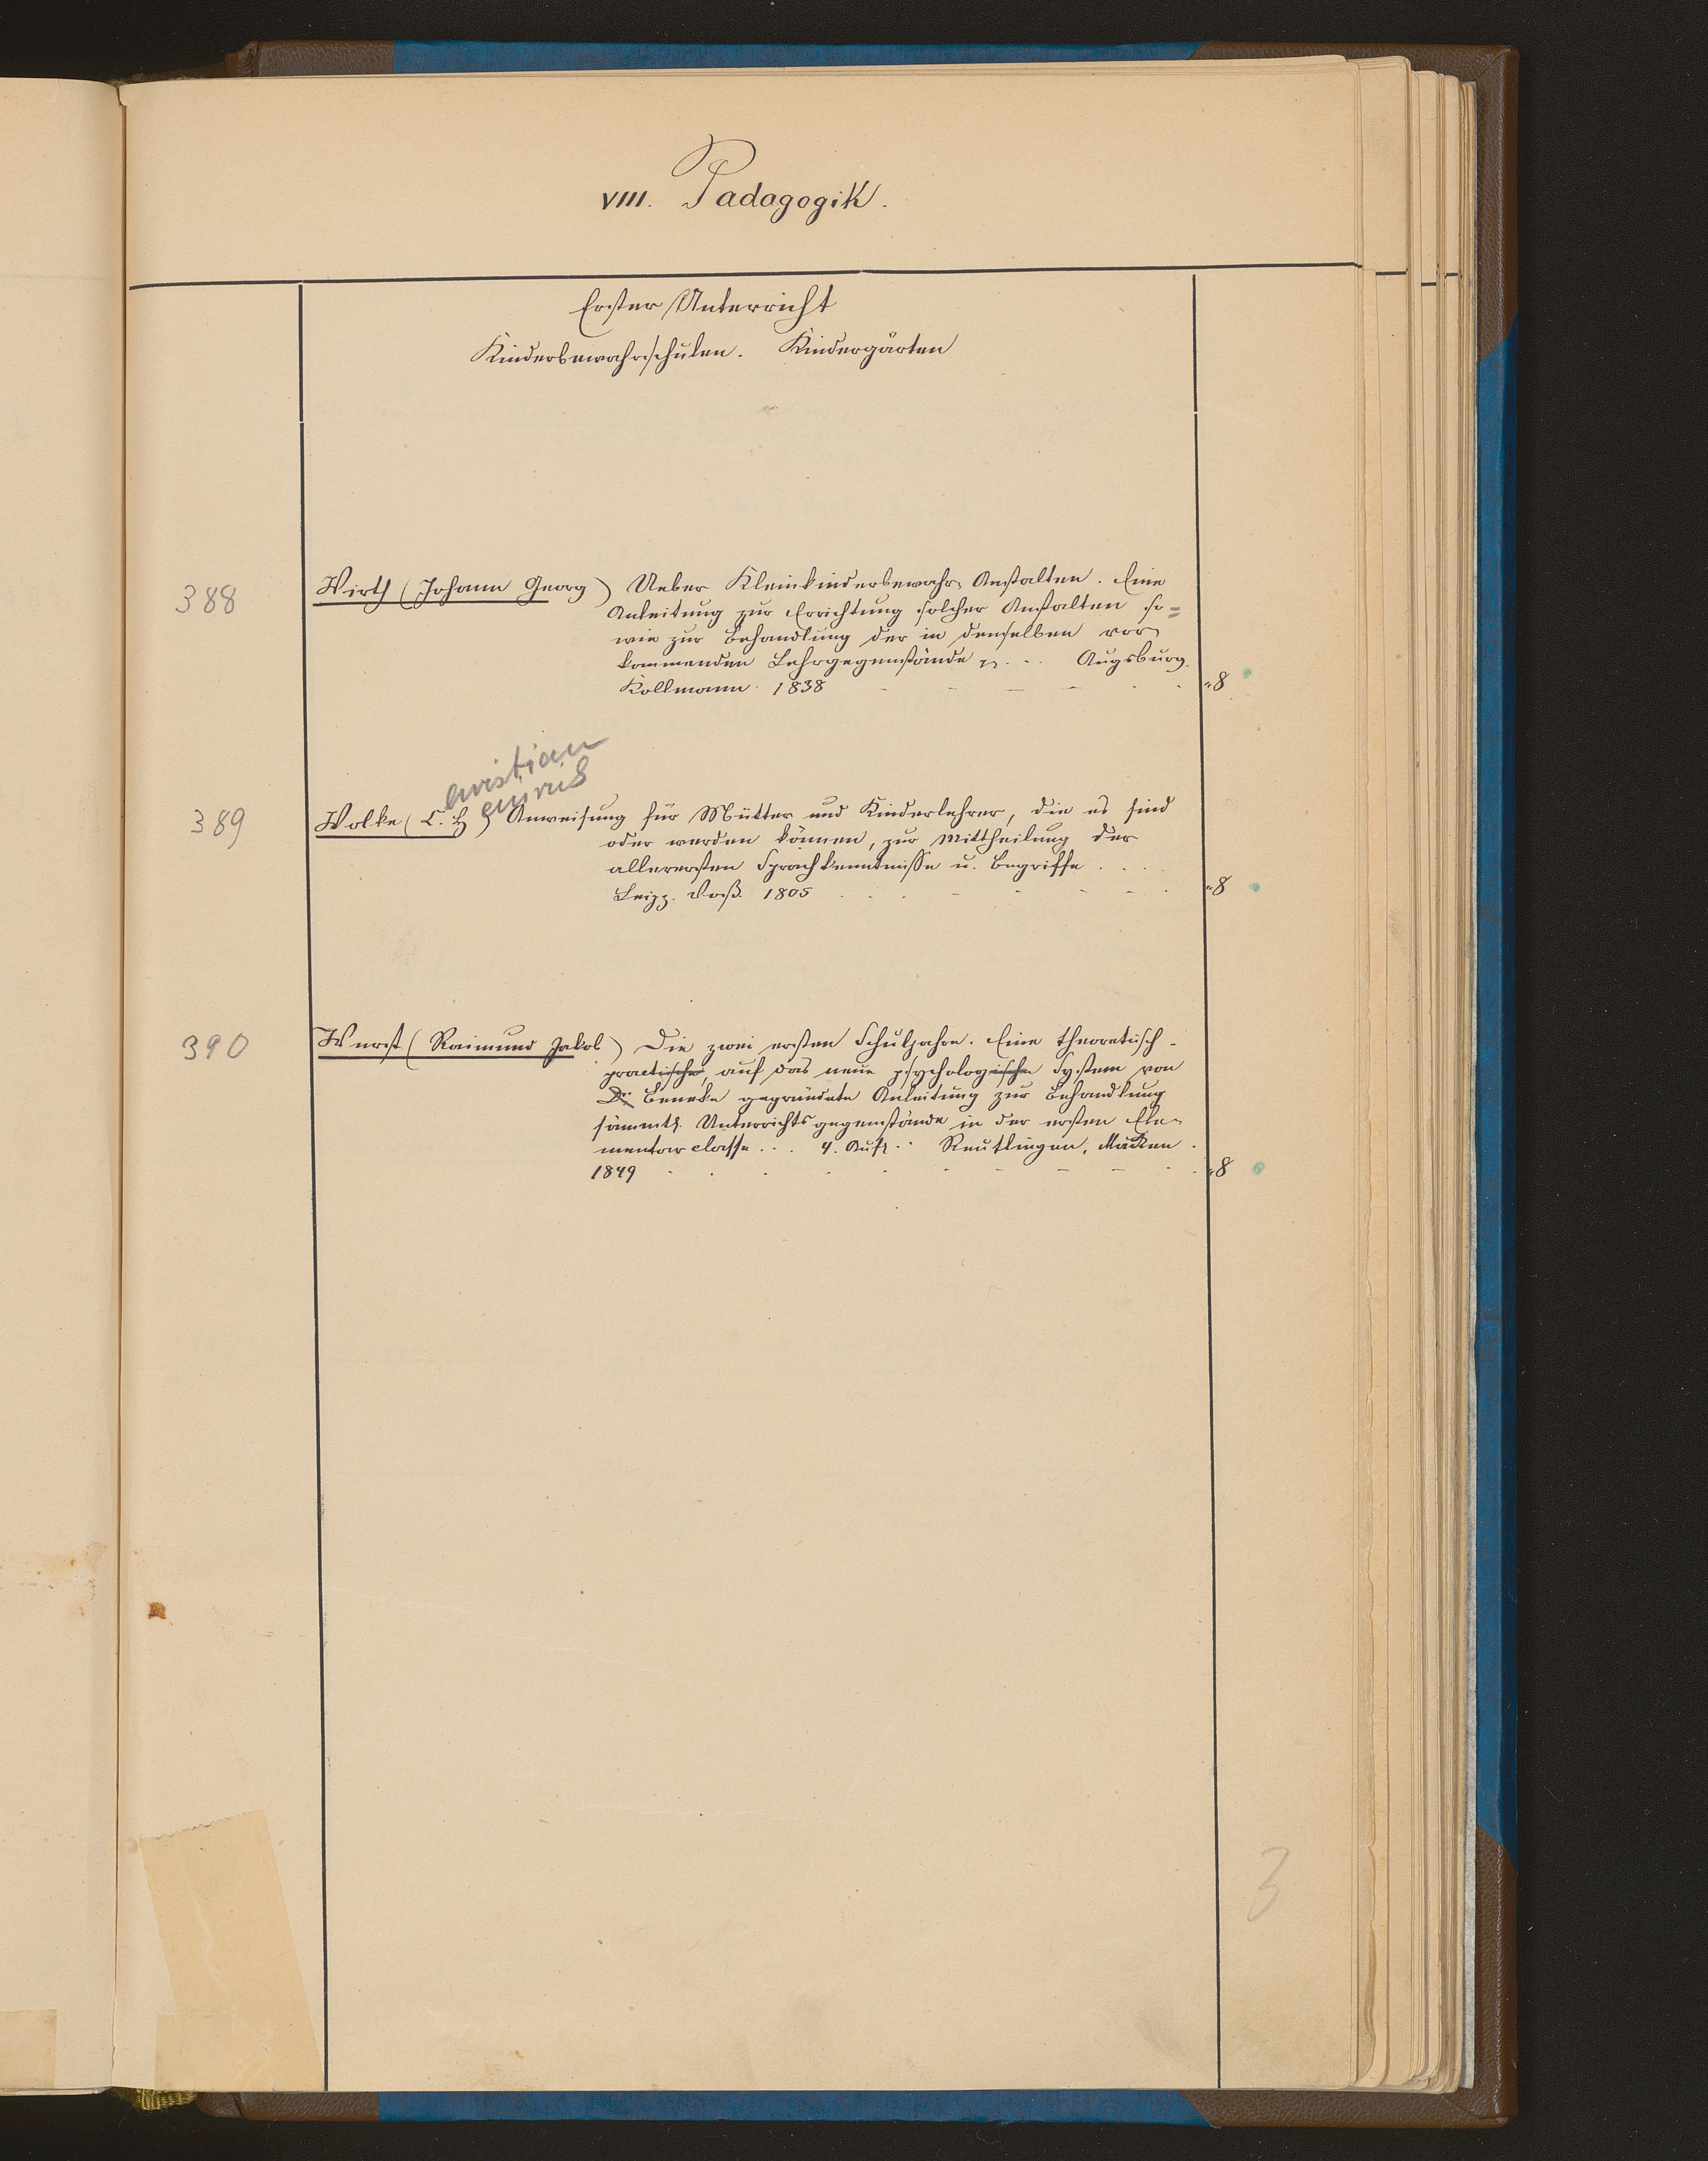 VIII. Padagogik.
Erster Unterricht
Kinderbewahrschulen. Kindergärten
388
Wirth (Johann Georg) Ueber Kleinkinderbewahr-Anstalten. Eine
Anleitung zur Errichtung solcher Anstalten so=
wie zur Behandlung der in denselben vor
kommenden Lehrgegenstände ... Augsburg.
Kollmann. 1838 "8
hristian
einrich
389
Wolke (C. H) Anweisung für Mütter und Kinderlehrer, die es sind
oder werden können, zur Mittheilung der
allerersten Sprachkenntnisse u. Begriffe ....
Leipz. Voß. 1805 "8
390
Wurst (Raimund Jakob) Die zwei ersten Schuljahre. Eine theoretisch-
practische, auf das neue psychologische System von
Dr. Beneke gegründete Anleitung zur Behandlung
sämmtl. Unterrichtsgegenstände in der ersten Ele-
mentarclasse ... 4. Aufl .. Reutlingen, Mäcken.
1849 "8
3